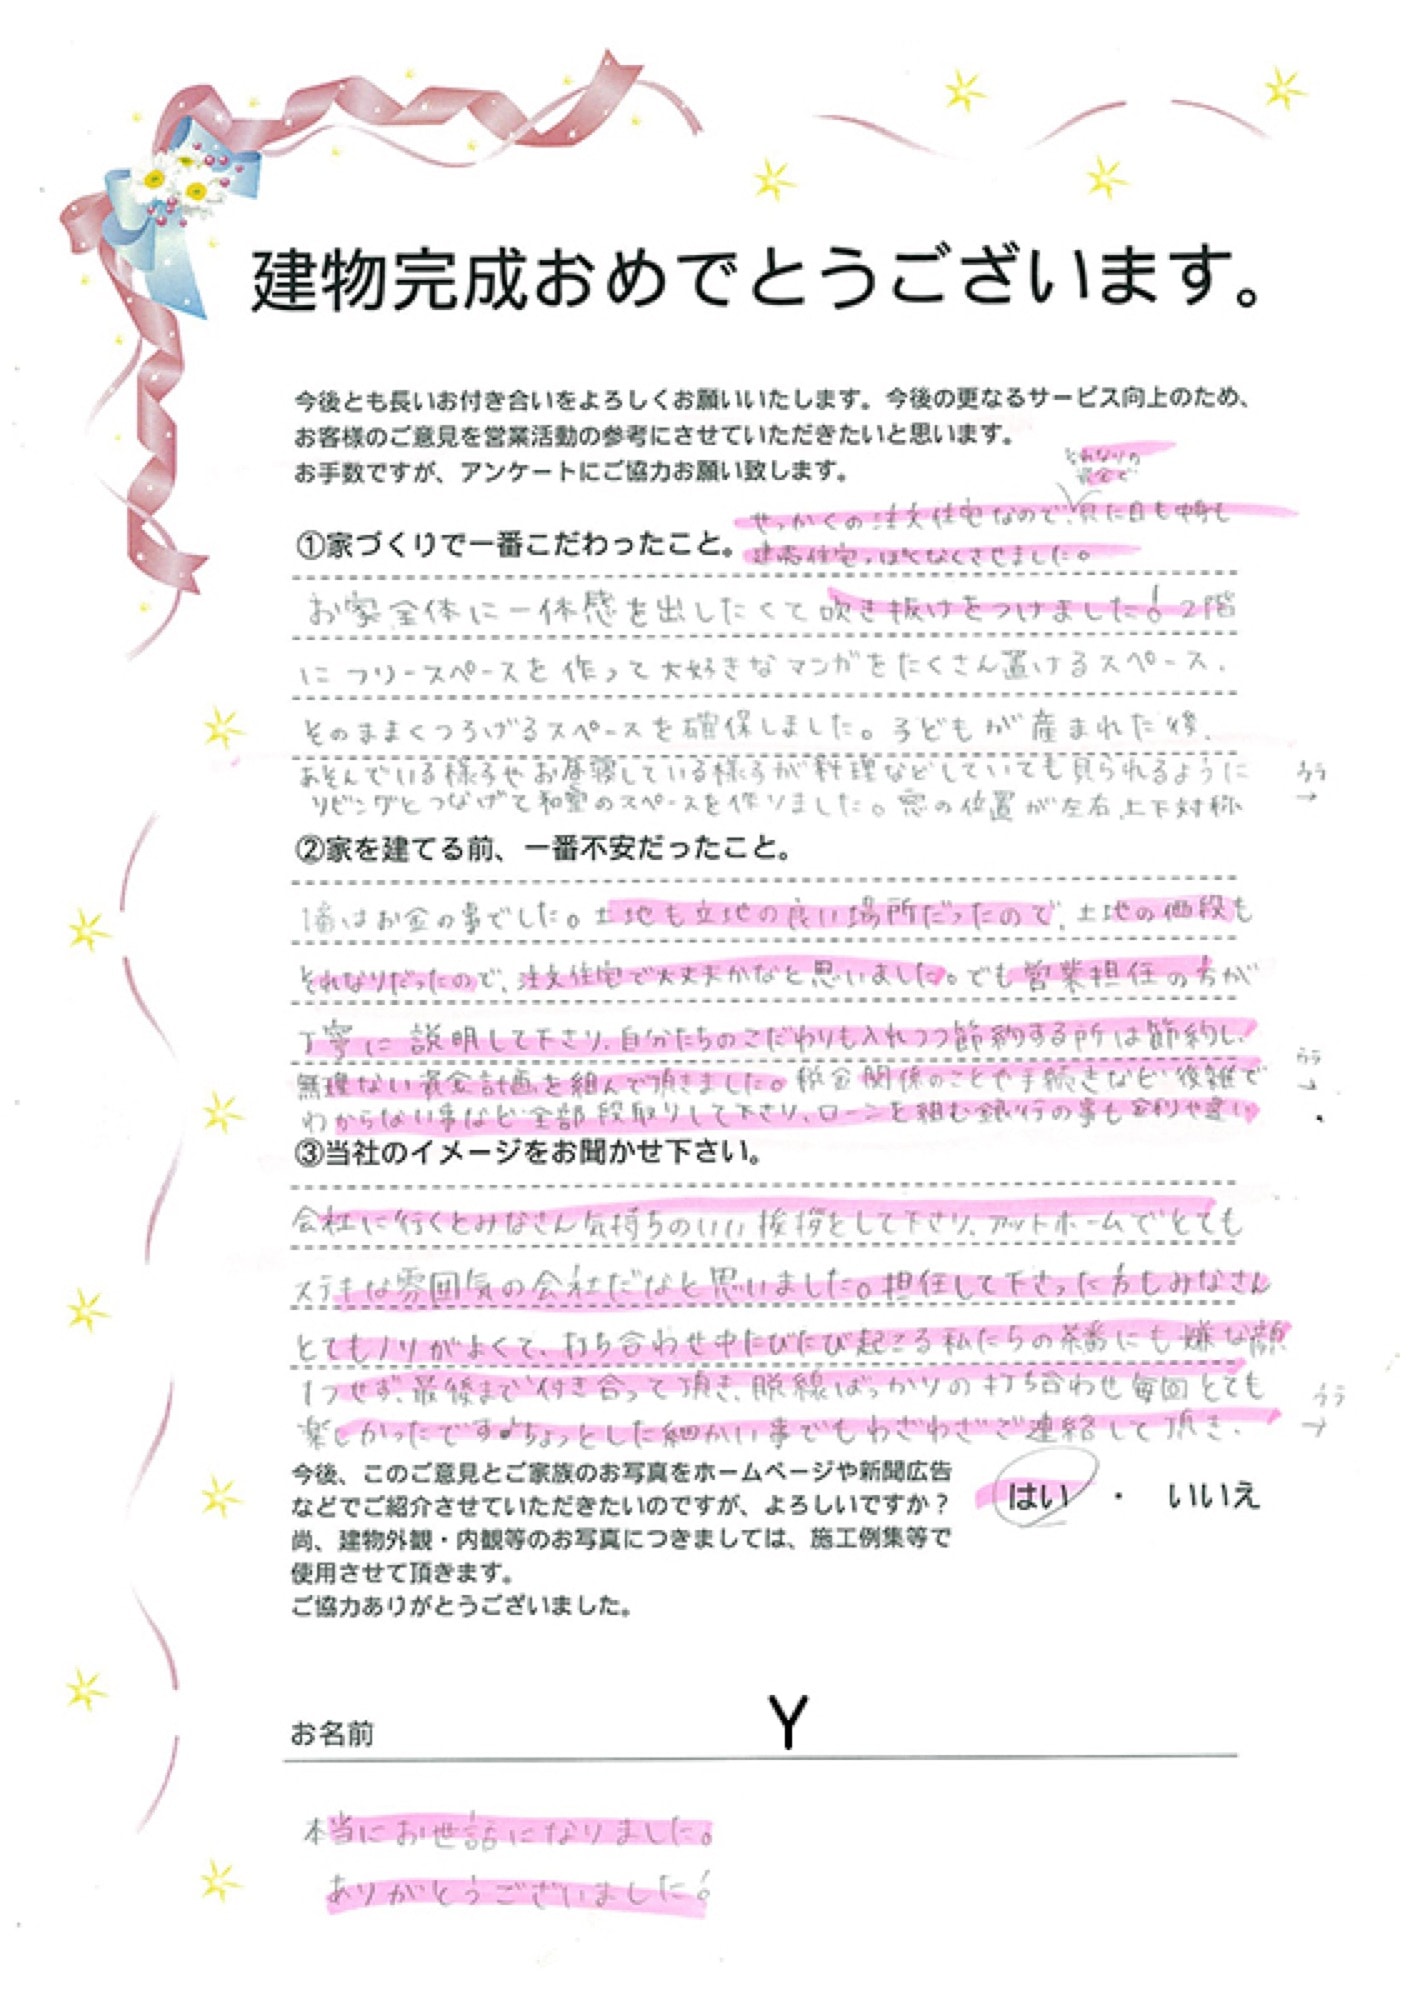 建物完成おめでとうございます。
今後とも長いお付き合いをよろしくお願いいたします。今後の更なるサービス向上のため、
お客様のご意見を営業活動の参考にさせていただきたいと思います。
お手数ですが、アンケートにご協力お願い致します。
それなりの
資金で
せっかくの注文住宅なので、見た目も中身も
①家づくりで一番こだわったこと。
建売住宅っぽくなくさせました。
お家全体に一体感を出したくて吹き抜けをつけました!2階
にフリースペースを作って大好きなマンガをたくさん置けるスペース、
そのままくつろげるスペースを確保しました。子どもが産まれた後、
あそんでいる様子やお昼寝している様子が料理などしていても見られるように
リビングとつなげて和室のスペースを作りました。窓の位置が左右、上下対称
ウラ
→
②家を建てる前、一番不安だったこと。
1番はお金の事でした。土地も立地の良い場所だったので、土地の価段も
それなりだったので、注文住宅で大丈夫かなと思いました。でも営業担任の方が
丁寧に説明して下さり、自分たちのこだわりも入れつつ節約する所は節約し、
無理ない資金計画を組んで頂きました。税金関係のことや手続きなど複雑で
わからない事など全部段取りして下さり、ローンを組む銀行の事も金利や違い
ウラ
→
③当社のイメージをお聞かせ下さい。
会社に行くとみなさん気持ちのいい挨拶をして下さり、アットホームでとても
ステキな雰囲気の会社だなと思いました。担任して下さった方もみなさん
とてもノリがよくて、打ち合わせ中たびたび起こる私たちの茶番にも嫌な顔
1つせず、最後まで付き合って頂き、脱線ばっかりの打ち合わせ毎回とても
楽しかったです♪ちょっとした細かい事でもわざわざご連絡して頂き、
ウラ
→
今後、このご意見とご家族のお写真をホームページや新聞広告
などでご紹介させていただきたいのですが、よろしいですか?
はい ・ いいえ
尚、建物外観・内観等のお写真につきましては、施工例集等で
使用させて頂きます。
ご協力ありがとうございました。
お名前 Y
本当にお世話になりました。
ありがとうございました!